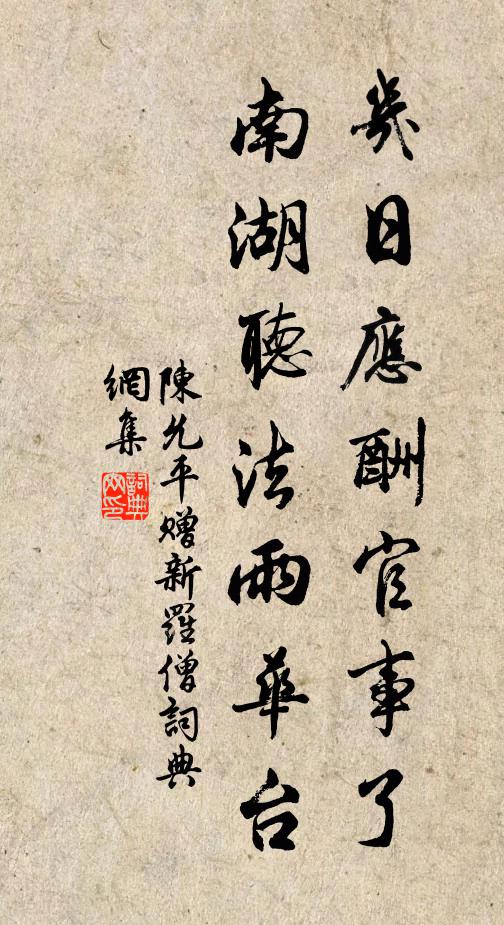 幾日應酬官事了
南湖聽法雨華台
陳允平贈新羅僧詞典
網集
詞典
网印